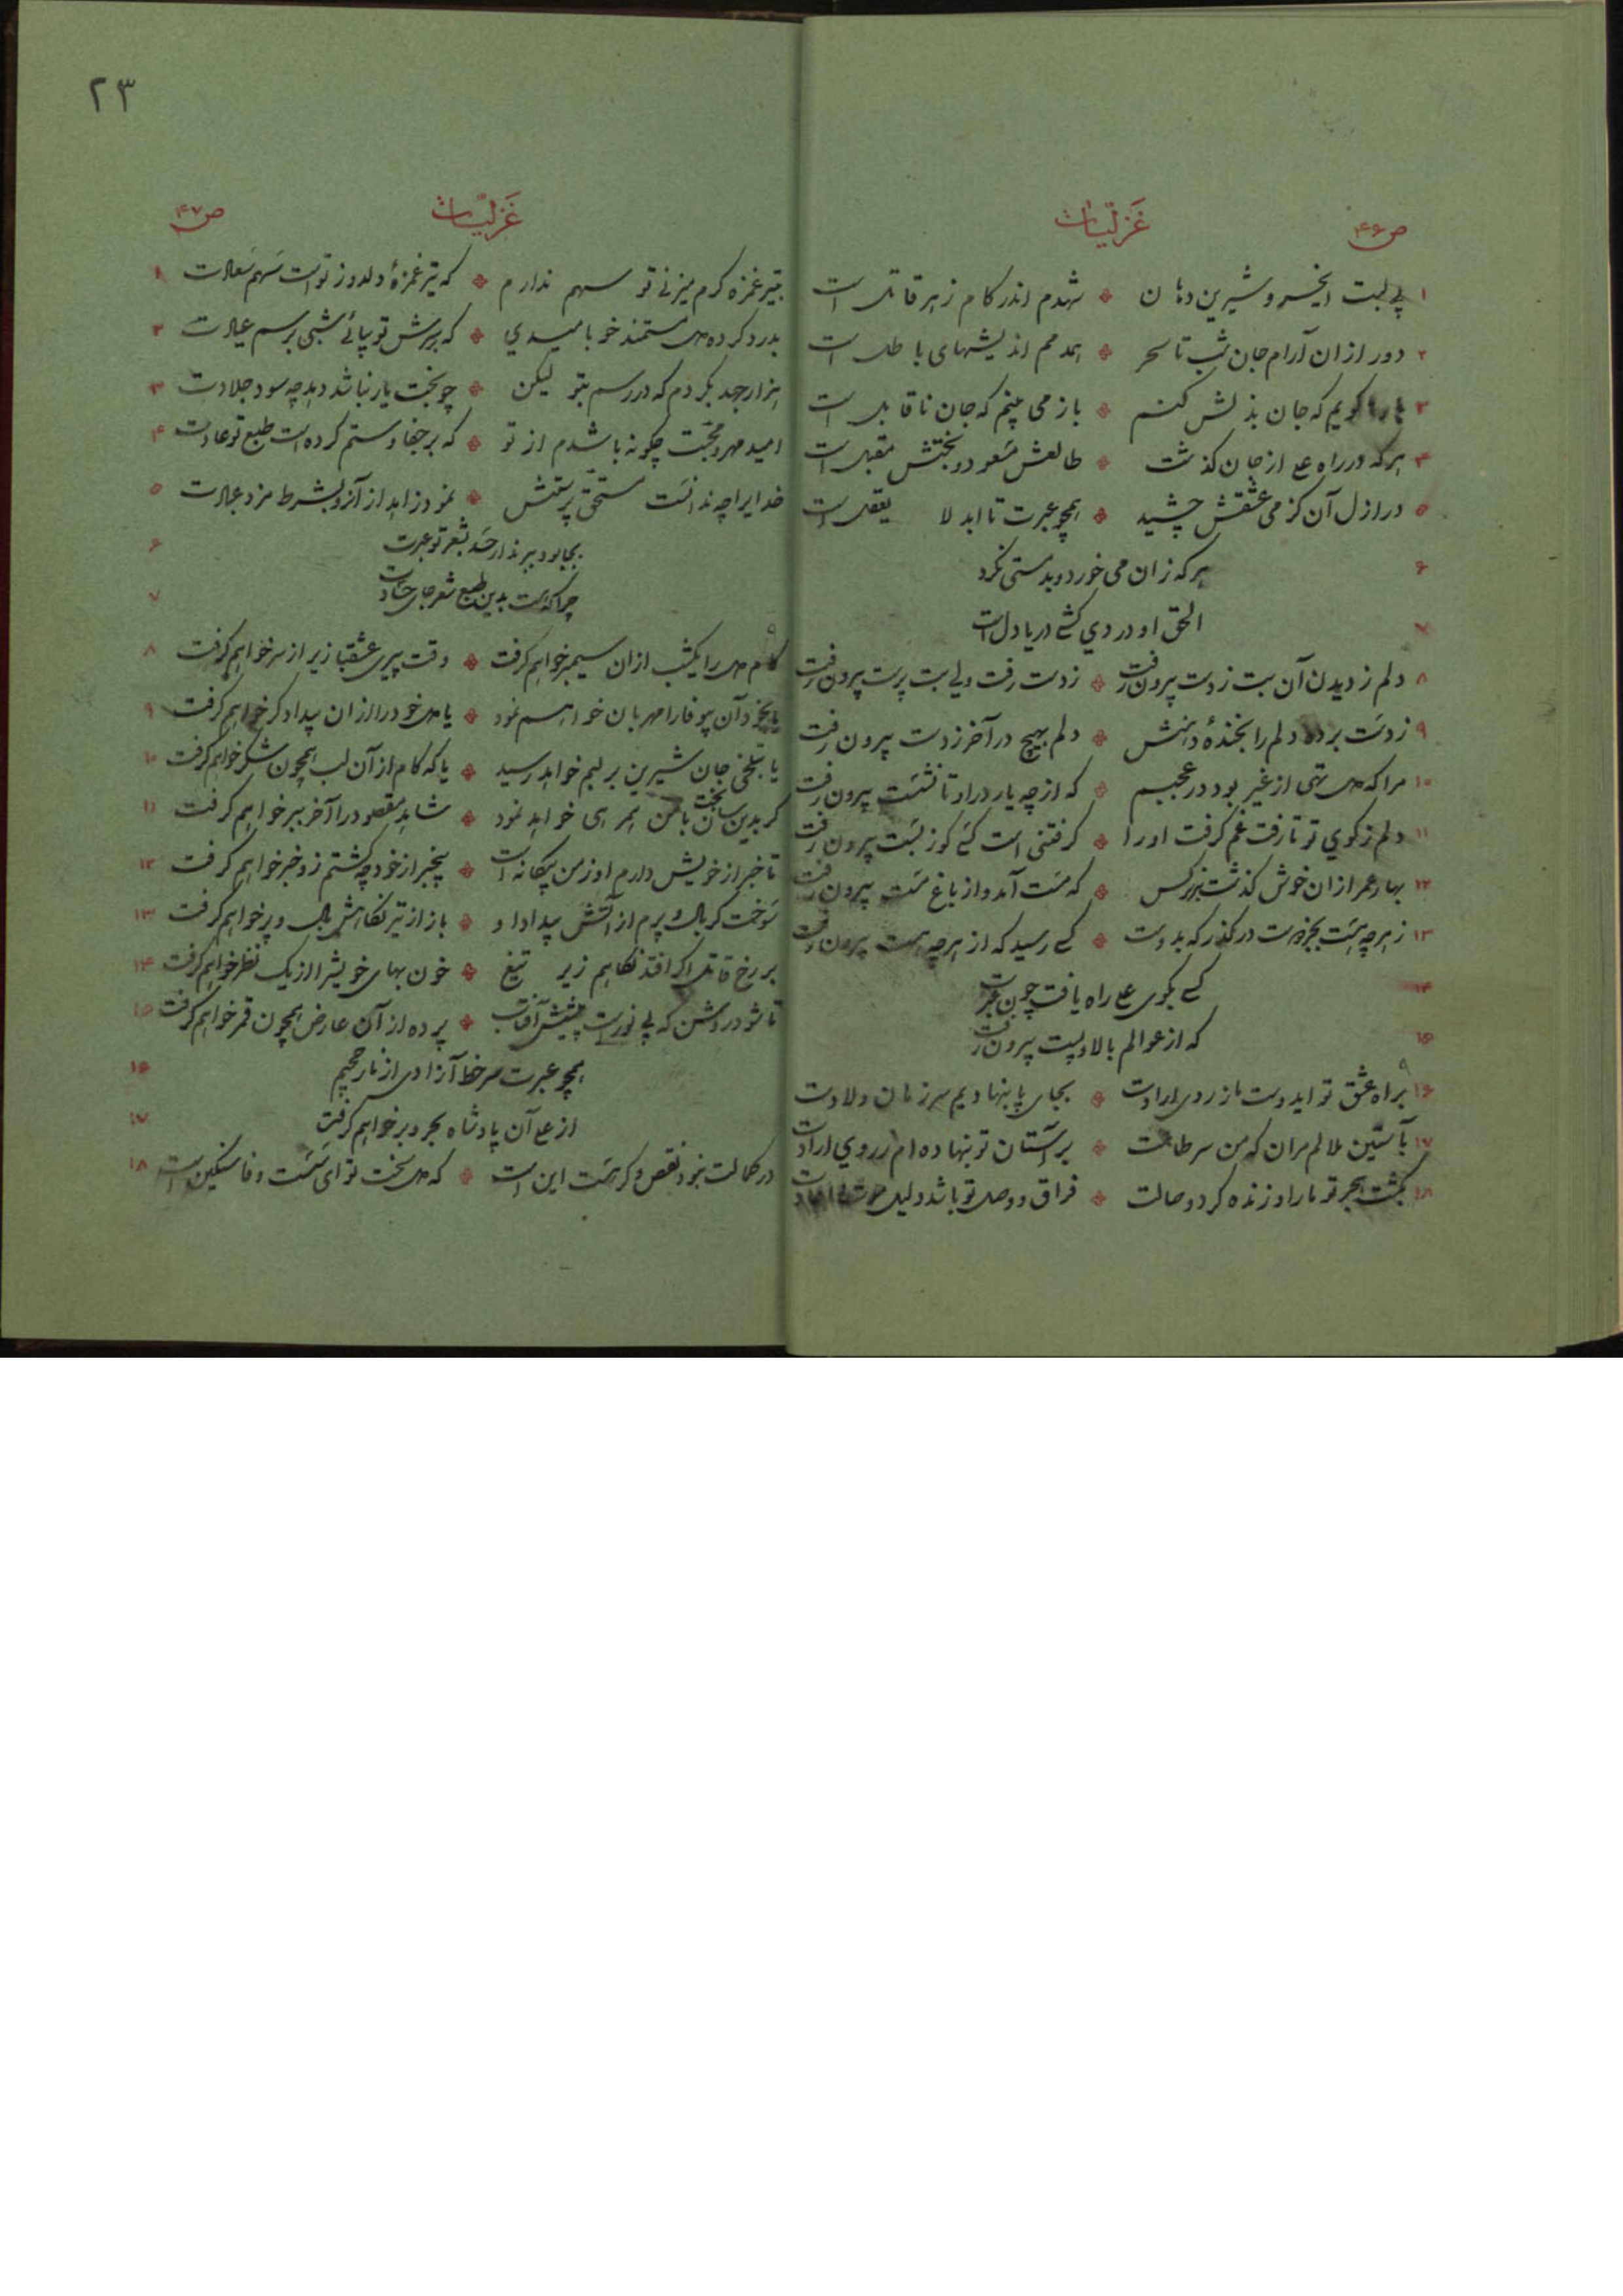 ۲۳
ص۴۶ غزلیّات
۱ بی لبت ایخسرو شیرین دهان شهدم اندر کام زهر قاتل است
۲ دور از ان آرام جان شب تا سحر همدمم اندیشهای باطل است
۳ بارها گویم که جان بذلش کنم باز می بینم که جان ناقابل است
۴ هرکه در راه علی از جان گذشت طالعش مسعود و بختش مقبل است
۵ در ازل آن کز می عشقش چشید همچو عبرت تا ابد لا یعقل است
۶ هرکه زان می خورد و بدمستی نکرد
۷ الحق او دردی کش دریا دل است
۸ دلم ز دیدن آن بت ز دست بیرون رفت ز دست رفت ولی بت پرست بیرون رفت
۹ ز دست برده دلم را بخندهٔ دهنش دلم بهیچ در آخر ز دست بیرون رفت
۱۰ مرا که دل تهی از غیر بود در عجبم که از چه یار در او تا نشست بیرون رفت
۱۱ دلم ز کوی تو تا رفت غم گرفت او را گرفتنی است کسی کوز بست بیرون رفت
۱۲ بهار عمر ازان خوش گذشت بر نرگس که مست آمد و از باغ مست بیرون رفت
۱۳ ز هرچه هست بجز دوست درگذر که بدوست کسی رسید که از هرچه هست بیرون رفت
۱۴ کسی بکوی علی راه یافت چون عبرت
۱۵ که از عوالم بالا و پست بیرون رفت
۱۶ براه عشق تو ایدوست ما ز روی ارادت بجای پا بنهادیم سر زمان ولادت
۱۷ بآستین ملالم مران که من سر طاعت بر آستان تو بنهاده ام ز روی ارادت
۱۸ بکشت هجر تو ما را و زنده کرد وصالت فراق و وصل تو باشد دلیل موت
غزلیّات ص۴۷
۱ بتیر غمزه گرم میزنی تو سهم ندارم که تیر غمزهٔ دلدوز تو است سهم سعادت
۲ بدرد کرده دل مستمند خو بامیدی که بپرسش تو بیائی شبی برسم عیادت
۳ هزار جهد بکردم که در رسم بتو لیکن چو بخت یار نباشد دهد چه سود جلادت
۴ امید مهر و محبّت چگونه باشدم از تو که بر جفا و ستم کرده است طبع تو عادت
۵ خدایرا چه ندانست مستحقّ پرستش نمود زاهد از آنرو بشرط مزد عبادت
۶ بجا بود ببرند ار حسد بشعر تو عبرت
۷ چرا که هست بدین طبع شعر جای حسادت
۸ کام دل را یکشب ازان سیمبر خواهم گرفت وقت پیری عشقبازیرا از سر خواهم گرفت
۹ یا بخود آن بیوفا را مهربان خواهم نمود یا دل خود را ازان بیدادگر خواهم گرفت
۱۰ یا بتلخی جان شیرین بر لبم خواهد رسید یا که کام از آن لب همچون شکر خواهم گرفت
۱۱ گر بدین سان بخت با من همرهی خواهد نمود شاهد مقصود را آخر ببر خواهم گرفت
۱۲ تا خبر از خویش دارم او ز من بیگانه است بیخبر از خود چه گشتم زو خبر خواهم گرفت
۱۳ سوخت گر بال و پرم از آتش بیداد او باز از تیر نگاهش بال و پر خواهم گرفت
۱۴ بر رخ قاتل اگر افتد نگاهم زیر تیغ خون بهای خویش را از یک نظر خواهم گرفت
۱۵ تا شود روشن که بی نور است پیشش آفتاب پرده از آن عارض همچون قمر خواهم گرفت
۱۶ همچو عبرت سر خط آزادی از نار جحیم
۱۷ از علی آن پادشاه بحر و بر خواهم گرفت
۱۸ در کمالت نبود نقص و گر هست این است که دل سخت تو ای سست وفا سنگین است